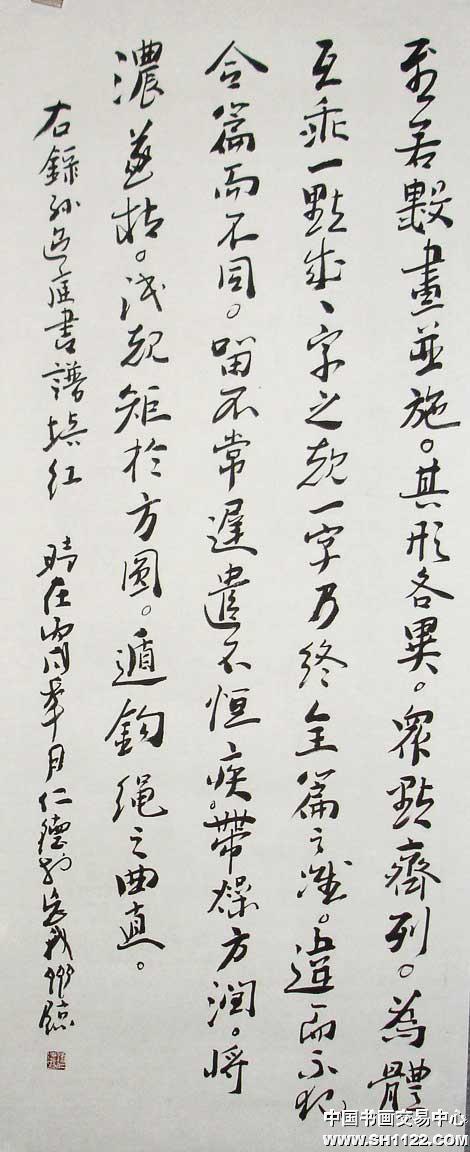 至若數畫並施。其形各異。眾點齊列。為體
互乖一點成、字之規一字乃終全篇之准。違而不犯
合篇而不同。留不常遲遣不恒疾。帶燥方潤。將
濃遂枯。泯規矩於方圓。遁鉤繩之曲直。
右錄孫過庭書譜 紅 時在丙 年 月仁德
中国书画交易中心
www.SH1122.com